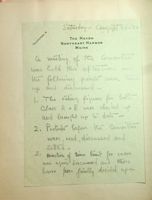 Saturday - August
The Haven
Northeast Harbor
Maine
A meeting of the Committee
was held this afternoon &
the following points were
up and discussed -
1. The rating figures for both
Class A & B were checked up
and brought up to date -
2. Protests before the Committee
were read, discussed and
settled -
3. Question of time limit for races
was again discussed and these
have been finally decided upon